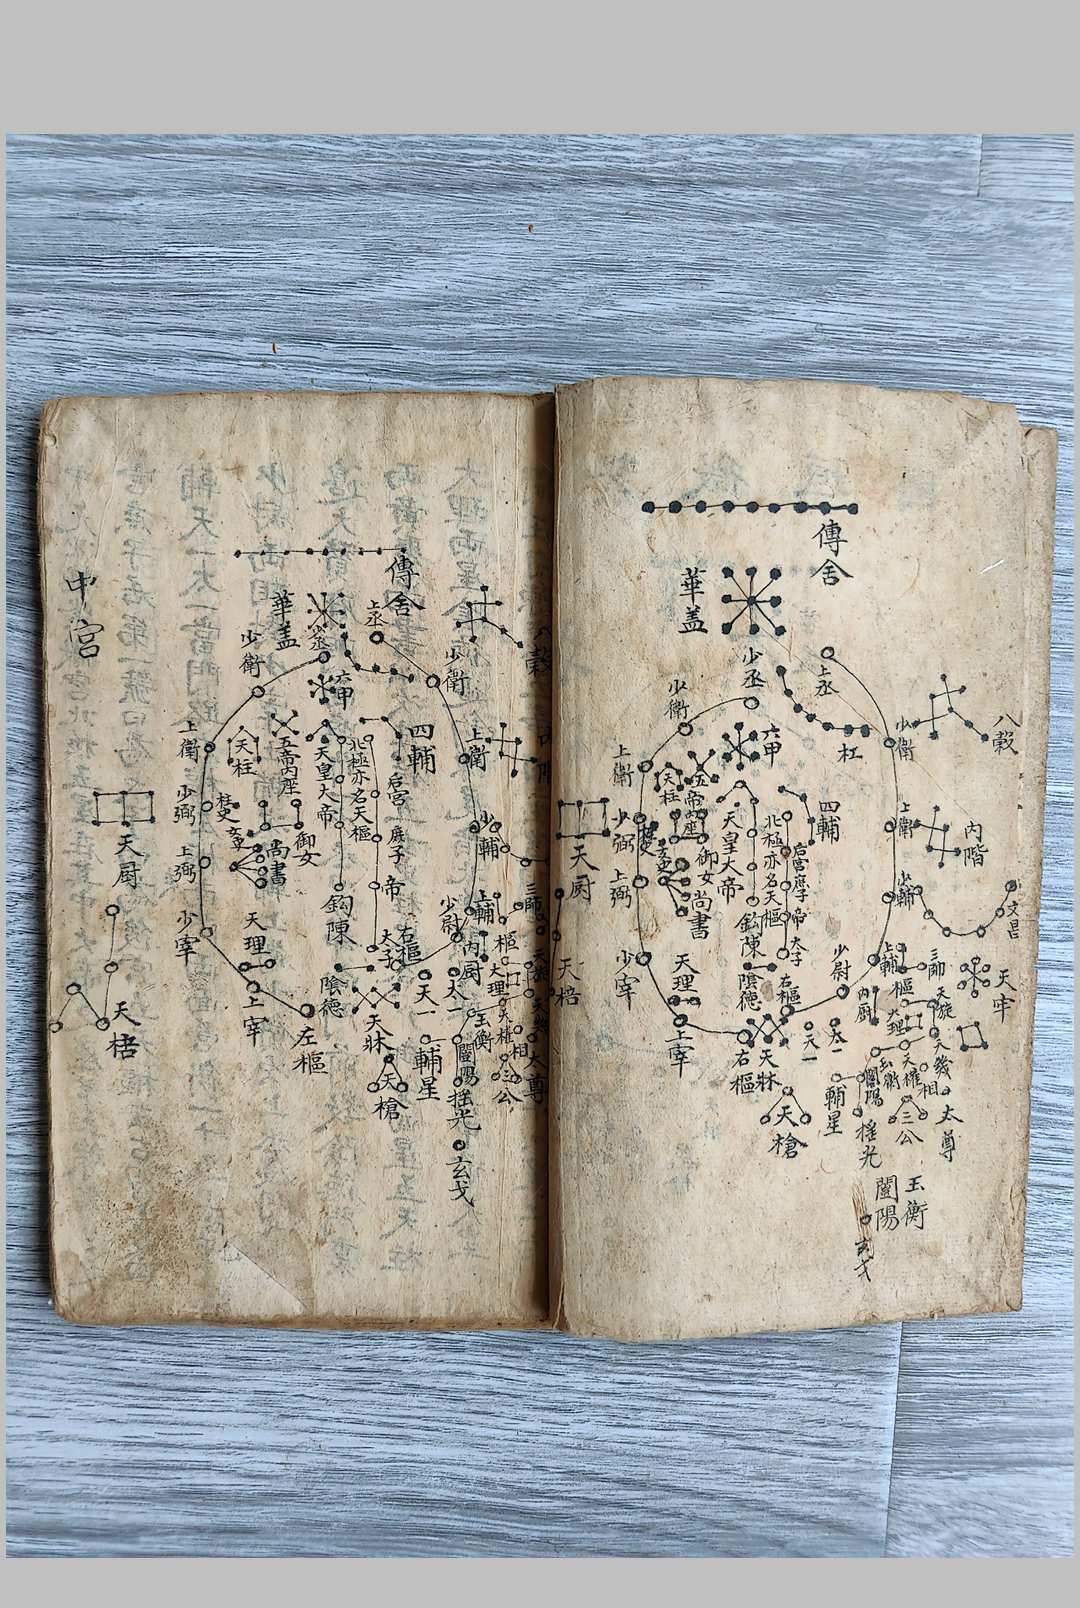 中宮
傳舍
華盖
上丞
少丞
少衛
少衛
六甲
八穀
上衛
上衛
天柱
五帝內座
天皇大帝
北極亦名天樞
四輔
后宮
庶子
帝
太子
少弼
柱史
御女
尚書
少輔
天厨
上弼
鈎陳
少宰
天理
少尉
上輔
三師
右樞
內厨
大理
陰德
天床
天一
太一
玉衡
天權
相
太尊
天棓
上宰
左樞
輔星
闓陽
三公
天槍
搖光
玄戈
傳舍
華盖
上丞
少丞
少衛
少衛
六甲
杠
八穀
上衛
上衛
天柱
五帝內座
天皇大帝
北極亦名天樞
四輔
后宮庶子
帝
太子
內階
少弼
御女
尚書
少輔
文昌
天厨
上弼
鈎陳
少宰
天理
陰德
右樞
少尉
上輔
三師
天牢
內厨
樞
天旋
大理
天棓
上宰
右樞
天牀
天一
太一
玉衡
天權
天幾
相
闓陽
輔星
太尊
三公
天槍
搖光
玉衡
闓陽
玄戈